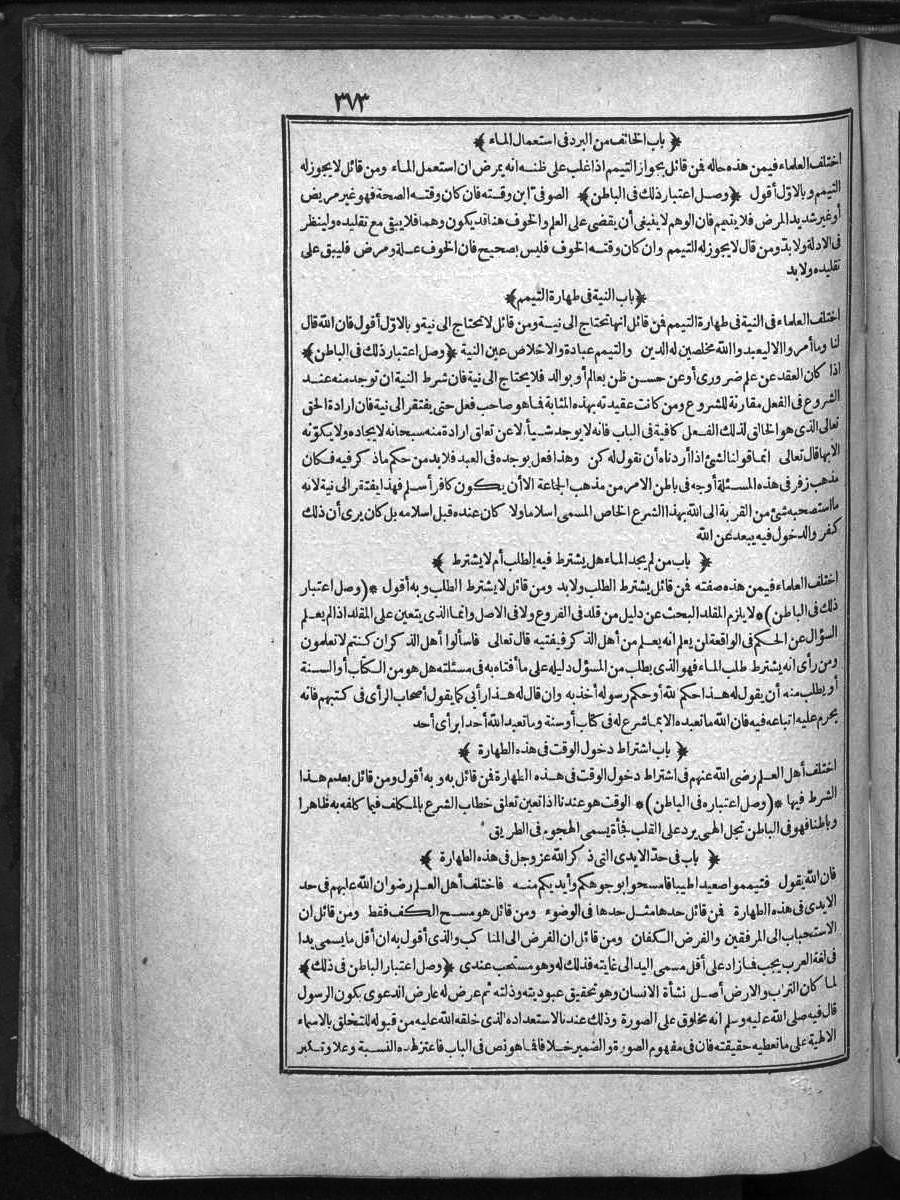 ٣٧٣
﴿ باب الخائف من البرد فى استعمال الماء ﴾
اختلف العلماء فيمن هذه حاله فمن قائل بجواز التيمم اذا غلب على ظنه انه يمرض ان استعمل الماء ومن قائل لا يجوز له
التيمم وبالاول أقول ﴿وصل اعتبار ذلك فى الباطن﴾ الصوفى ابن وقته فان كان وقته الصحة فهو غير مريض
أو غير شديد المرض فلا يتيمم فان الوهم لا ينبغى أن يقضى على العلم والخوف هنا قد يكون وهما فلا يبقى مع تقليده ولينظر
فى الادلة ولا بد ومن قال لا يجوز له التيمم وان كان وقته الخوف فليس بصحيح فان الخوف علة ومرض فليبق على
تقليده ولا بد
﴿باب النية فى طهارة التيمم﴾
اختلف العلماء فى النية فى طهارة التيمم فمن قائل انها تحتاج الى نية ومن قائل لا تحتاج الى نية وبالاول أقول فان الله قال
لنا وما أمروا الا ليعبدوا الله مخلصين له الدين والتيمم عبادة والاخلاص عين النية ﴿وصل اعتبار ذلك فى الباطن﴾
اذا كان العقد عن علم ضرورى أو عن حسن ظن بعالم أو بوالد فلا يحتاج الى نية فان شرط النية ان توجد منه عند
الشروع فى الفعل مقارنة للشروع ومن كانت عقيدته بهذه المثابة فما هو صاحب فعل حتى يفتقر الى نية فان ارادة الحق
تعالى الذى هو الخالق لذلك الفعل كافية فى الباب فانه لا يوجد شيأ الا عن تعلق ارادة منه سبحانه لايجاده ولا يكونه
الا بها قال تعالى انما قولنا لشئ اذا أردناه أن نقول له كن وهذا فعل يوجده فى العبد فلا بد من حكم ما ذكر فيه فكان
مذهب زفر فى هذه المسئلة أوجه فى باطن الامر من مذهب الجماعة الا أن يكون كافر أسلم فهذا يفتقر الى نية لانه
ما استصحبه شئ من القربة الى الله بهذا الشرع الخاص المسمى اسلاما ولا كان عنده قبل اسلامه بل كان يرى أن ذلك
كفر والدخول فيه يبعد عن الله
﴿ باب من لم يجد الماء هل يشترط فيه الطلب أم لا يشترط ﴾
اختلف العلماء فيمن هذه صفته فمن قائل يشترط الطلب ولا بد ومن قائل لا يشترط الطلب وبه أقول *(وصل اعتبار
ذلك فى الباطن)* لا يلزم المقلد البحث عن دليل من قلد فى الفروع ولا فى الاصل وانما الذى يتعين على المقلد اذا لم يعلم
السؤال عن الحكم فى الواقعة لمن يعلم انه يعلم من أهل الذكر فيفتيه قال تعالى فاسألوا أهل الذكر ان كنتم لا تعلمون
ومن رأى انه يشترط طلب الماء فهو الذى يطلب من المسؤل دليله على ما أفتاه به فى مسئلته هل هو من الكتاب أو السنة
أو يطلب منه أن يقول له هذا حكم الله أو حكم رسوله أخذ به وان قال له هذا رأيى كما يقول أصحاب الرأى فى كتبهم فانه
يحرم عليه اتباعه فيه فان الله ما تعبده الا بما شرع له فى كتاب أو سنة وما تعبد الله أحدا برأى أحد
﴿ باب اشتراط دخول الوقت فى هذه الطهارة ﴾
اختلف أهل العلم رضى الله عنهم فى اشتراط دخول الوقت فى هذه الطهارة فمن قائل به وبه أقول ومن قائل بعدم هذا
الشرط فيها *(وصل اعتباره فى الباطن)* الوقت هو عندنا اذا تعين تعلق خطاب الشرع بالمكلف فيما كلفه به ظاهرا
وباطنا فهو فى الباطن تجل الهى يرد على القلب فجأة يسمى الهجوم فى الطريق
﴿ باب فى حد الايدى التى ذكر الله عز وجل فى هذه الطهارة ﴾
فان الله يقول فتيمموا صعيدا طيبا فامسحوا بوجوهكم وأيديكم منه فاختلف أهل العلم رضوان الله عليهم فى حد
الايدى فى هذه الطهارة فمن قائل حدها مثل حدها فى الوضوء ومن قائل هو مسح الكف فقط ومن قائل ان
الاستحباب الى المرفقين والفرض الكفان ومن قائل ان الفرض الى المناكب والذى أقول به ان أقل ما يسمى يدا
فى لغة العرب يجب فما زاد على أقل مسمى اليد الى غايته فذلك له وهو مستحب عندى ﴿وصل اعتبار الباطن فى ذلك﴾
لما كان التراب والارض أصل نشأة الانسان وهو تحقيق عبوديته وذلته ثم عرض له عارض الدعوى بكون الرسول
قال فيه صلى الله عليه وسلم انه مخلوق على الصورة وذلك عندنا لاستعداده الذى خلقه الله عليه من قبوله للتخلق بالاسماء
الالهية على ما تعطيه حقيقته فان فى مفهوم الصورة والضمير خلافا فما هو نص فى الباب فاعتز لهذه النسبة وعلا وتكبر